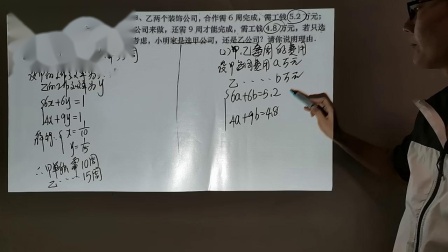 、乙两个装饰公司，合作需6周完成，需工钱5.2万元；
公司来做，还需9周才能完成，需工钱4.8万元，若只选
考虑，小明家是选甲公司，还是乙公司？请你说明理由．
6x+6y=1
4x+9y=1
x=1/10
y=1/15
∴甲单独需10周
乙‥‥15周
(2)甲、乙每周的费用
设甲每周费用a万元
乙‥‥‥b万元
6a+6b=5.2
4a+9b=4.8